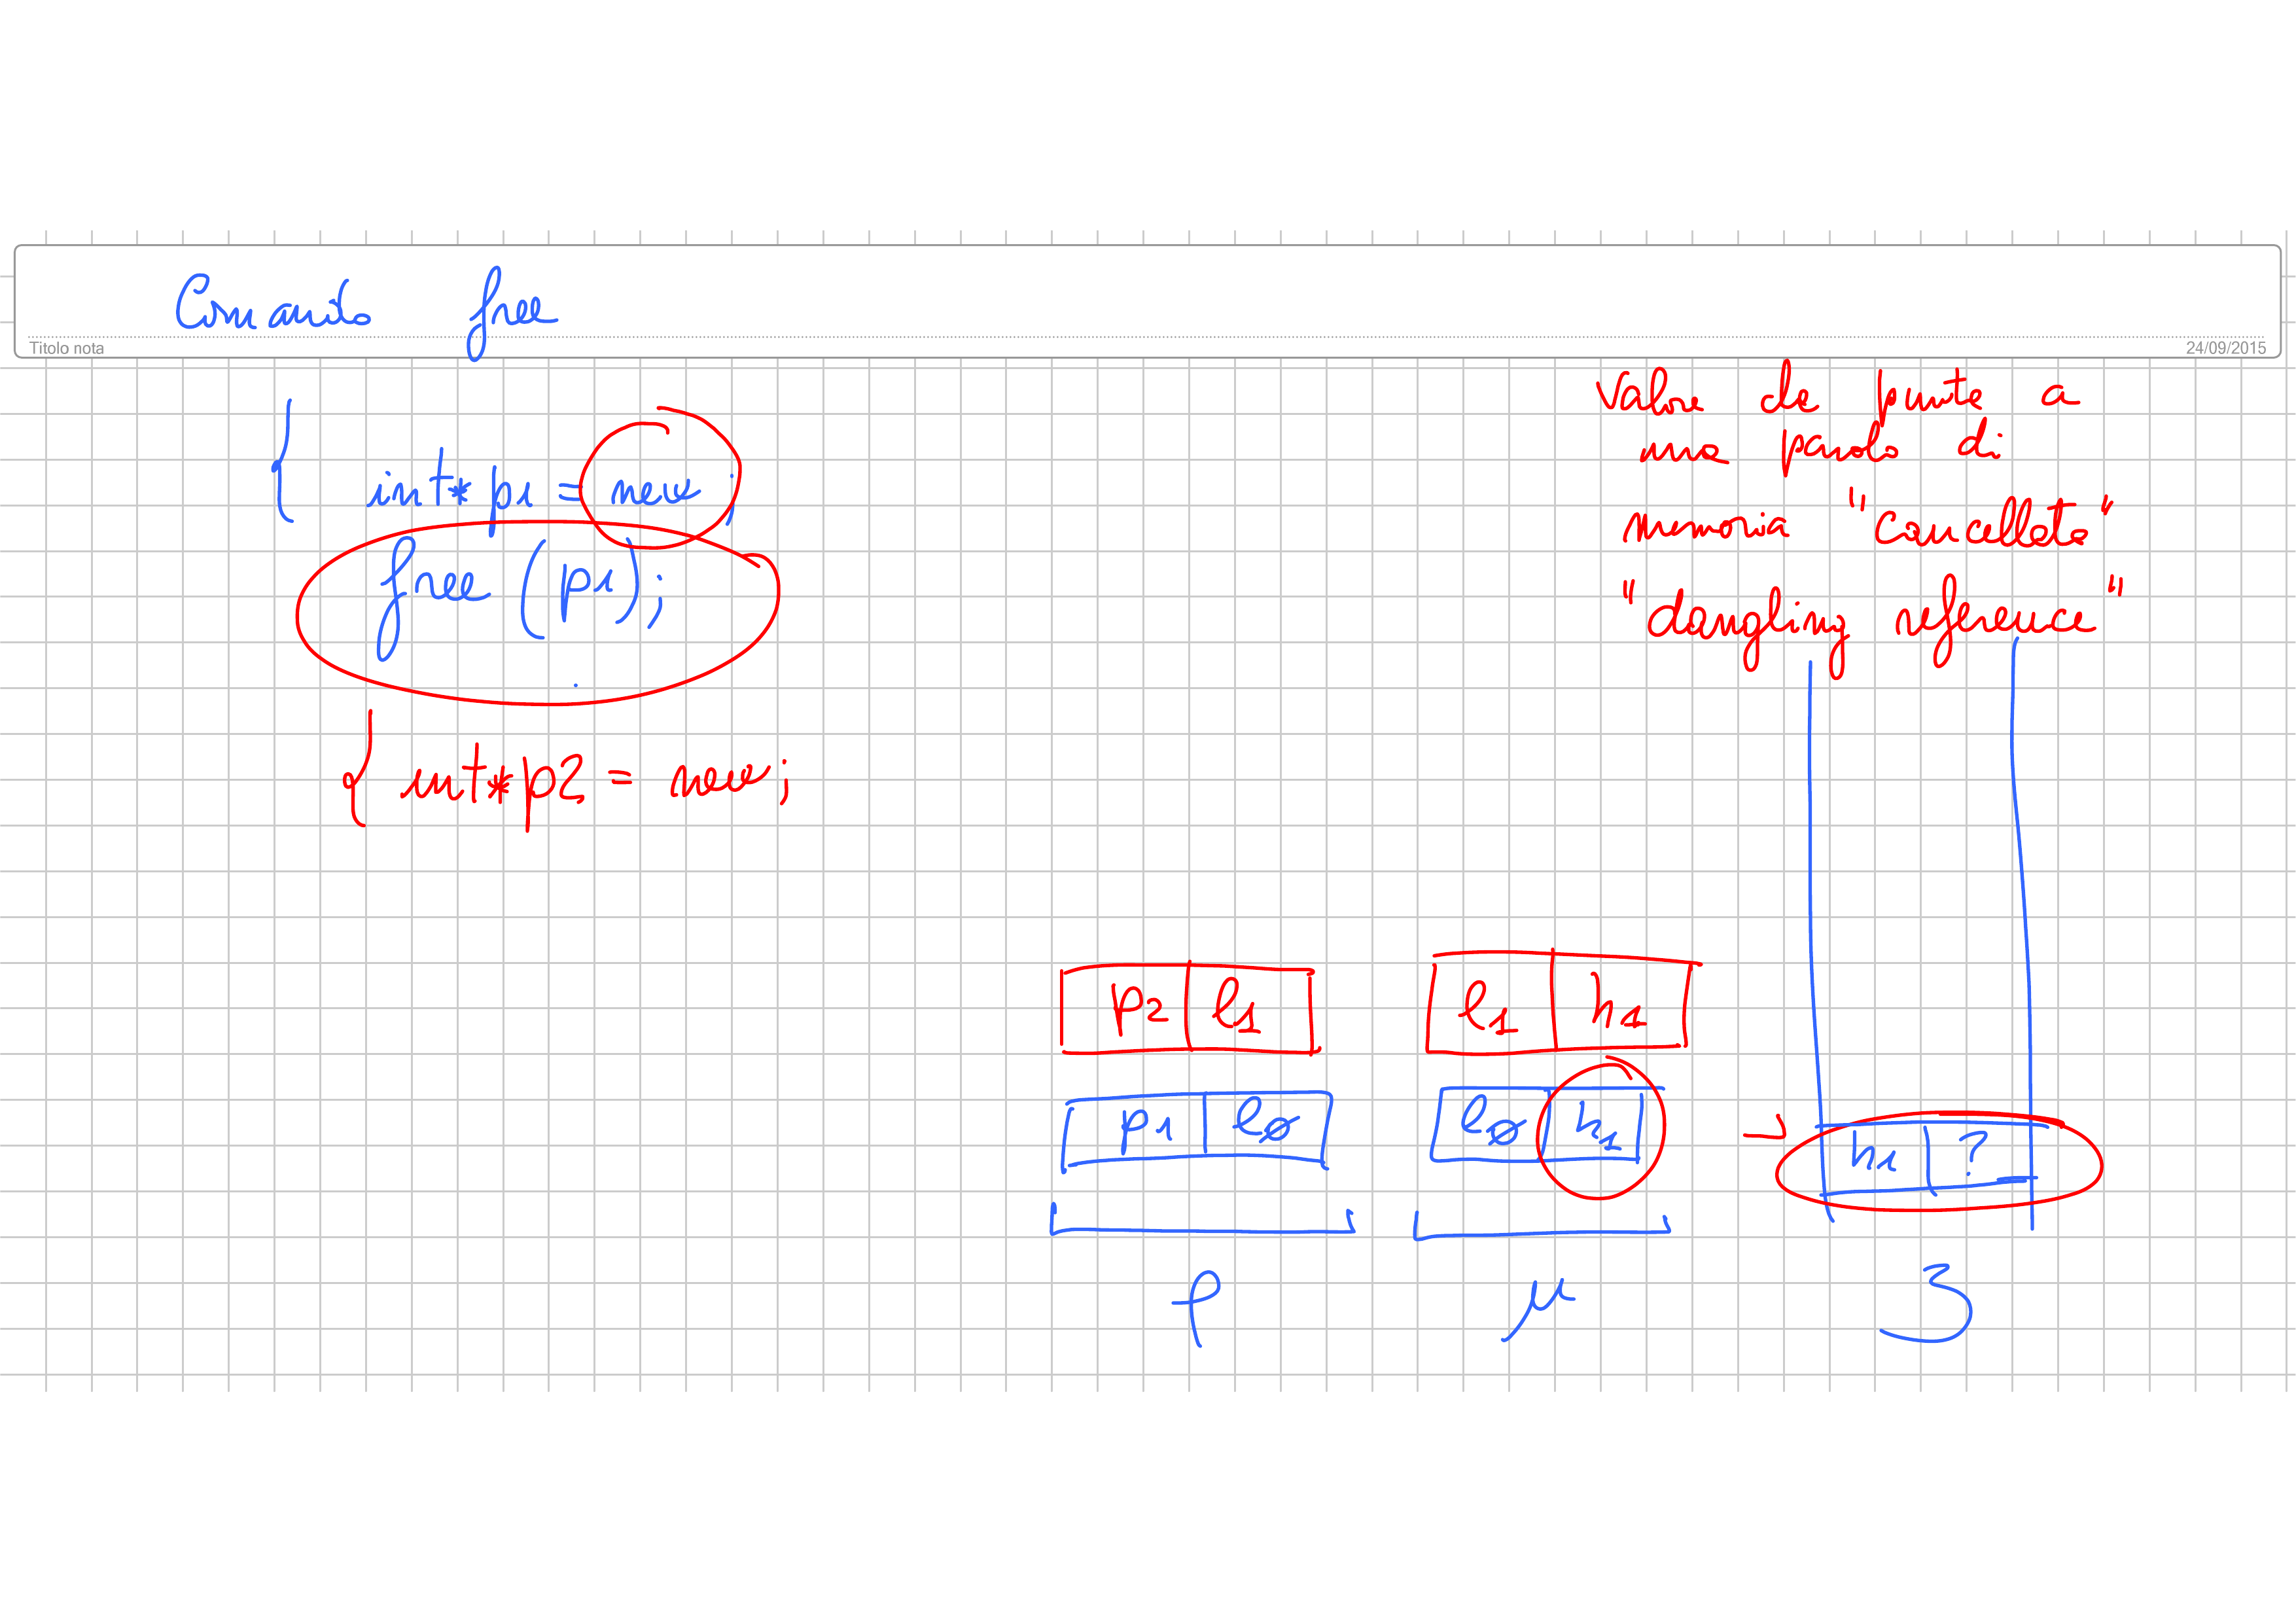 Comando free
Titolo nota
24/09/2015
{ int* p1 = new ;
free (p1);
{ int* p2 = new ;
Valore che punta a
una parte di
memoria "Cancellata"
"dangling reference"
p2 | l1
l1 | h1
p1 | l0
l0 | h1
h1 | ?
ρ μ ζ